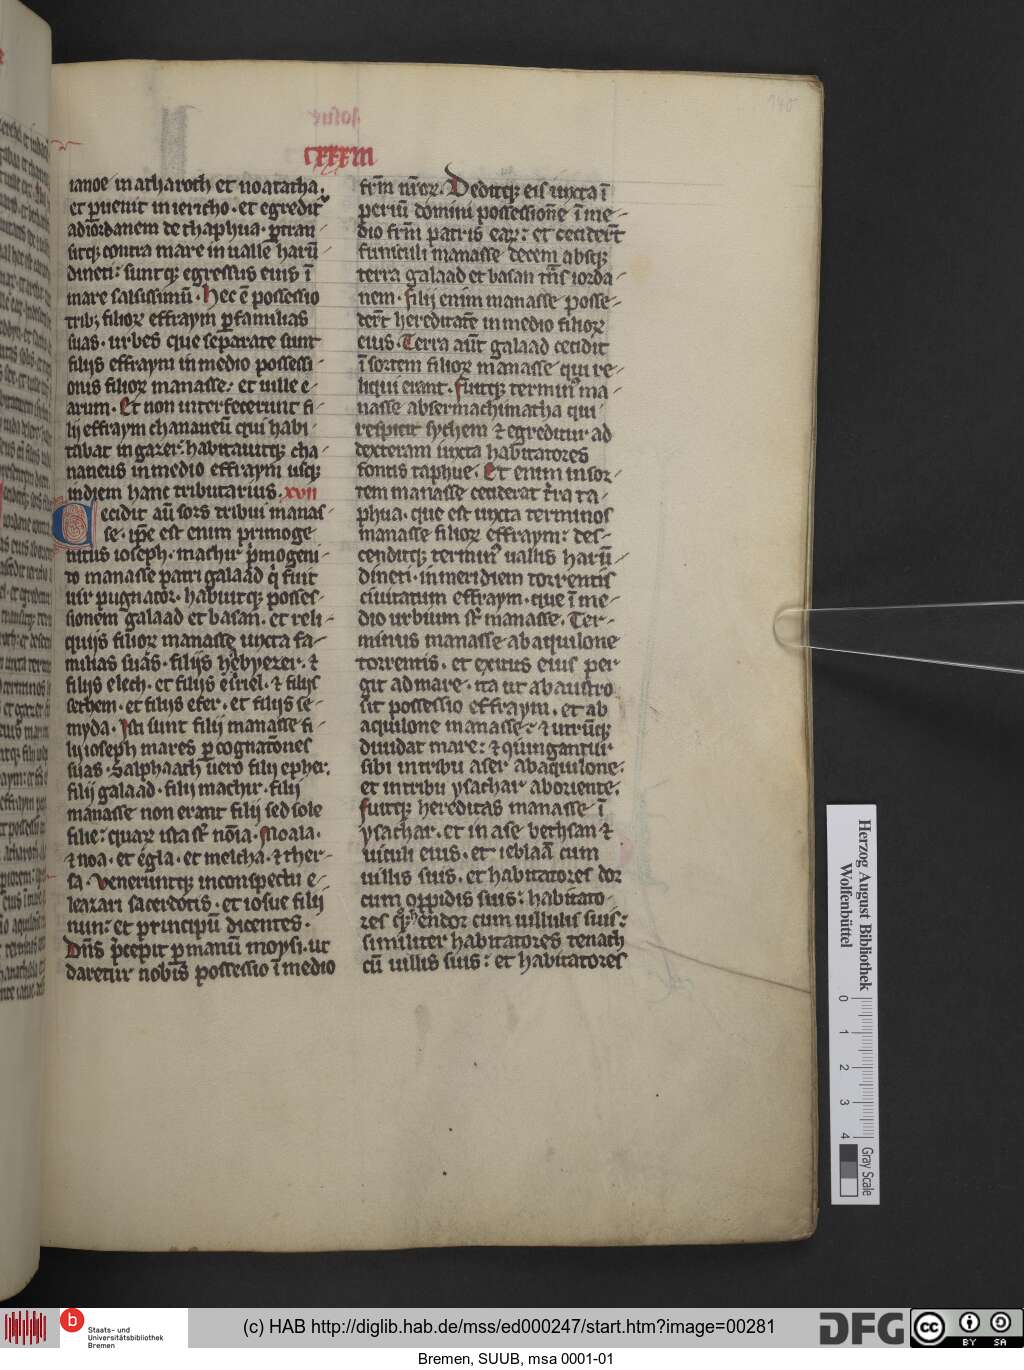 cxxxiii
ianoe in atharoth et noaratha.
et ꝑuenit in iericho · et egredit᷑
ad iordanem de thaphua · ꝑtran-
sitqꝫ contra mare in ualle harū
dineti : suntqꝫ egressus eius ī
mare salsissimū · Hec ē possessio
tribꝫ filioꝝ effraym ꝑ familias
suas · urbes que separate sunt
filijs effraym in medio possessi-
onis filioꝝ manasse : et uille e-
arum · Et non interfecerunt fi-
lij effraym chananeū qui habi-
tabat in gazer : habitauitqꝫ cha-
naneus in medio effraym usqꝫ
in diem hanc tributarius . xvii
Cecidit aū sors tribui manas-
se · ip̄e est enim primoge-
nitus ioseph · machir pͥmogeni-
to manasse patri galaad qͥ fuit
uir pugnator · habuitqꝫ posses-
sionem galaad et basan . et reli-
quijs filioꝝ manasse iuxta fa-
milias suas · filijs hebyezer . ⁊
filijs elech . et filijs esriel . ⁊ filijs
sechem . et filijs efer . et filijs se-
myda . Isti sunt filij manasse fi-
lij ioseph mares ꝑ cognatōnes
suas · Salphaath uero filij epher.
filij galaad · filij machir · filij
manasse non erant filij sed sole
filie : quaꝝ ista st̄ nōia . Moala .
⁊ noa · et egla · et melcha · ⁊ ther-
sa . Veneruntqꝫ in conspectu e-
leazari sacerdotis · et iosue filij
nun : et principū dicentes .
Dn̄s p̄cepit ꝑ manū moysi · ut
daretur nobis possessio ī medio
fr̄m nr̄oꝝ . Deditqꝫ eis iuxta ī
periū domini possessionē ī me-
dio fr̄m patris eaꝝ : et cecider̄t
funiculi manasse decem absqꝫ
terra galaad et basan trn̄s iorda-
nem · filij enim manasse posse-
der̄t hereditatē in medio filioꝝ
eius . Terra aūt galaad cecidit
ī sortem filioꝝ manasse qui re-
liqui erant . fuitqꝫ terminꝰ ma-
nasse ab sermachmatha qui
respicit sychem ⁊ egreditur ad
dexteram iuxta habitatores
fontis taphue . Et enim in sor-
tem manasse ceciderat t̄ra ta-
phua . que est iuxta terminos
manasse filioꝝ effraym : des-
cenditqꝫ terminꝰ uallis harū-
dineti · in meridiem torrentis
ciuitatum effraym · que ī me-
dio urbium st̄ manasse . Ter-
minus manasse ab aquilone
torrentis . et exitus eius per
git ad mare . ita ut ab austro
sit possessio effraym . et ab
aquilone manasse : ⁊ utrūqꝫ
diuidat mare : ⁊ quingantur
sibi in tribu aser ab aquilone .
et in tribu ysachar ab oriente .
fuitqꝫ hereditas manasse ī
ysachar . et in ase bethsan ⁊
uiculi eius . et ieblaā cum
uillis suis . et habitatores dor
cum oppidis suis : habitato-
res endor cum uillulis suis :
similiter habitatores tenach
cū uillis suis : et habitatores
Herzog August Bibliothek
Wolfenbüttel
0 1 2 3 4
Gray Scale
b
Staats- und
Universitätsbibliothek
Bremen
(c) HAB http://diglib.hab.de/mss/ed000247/start.htm?image=00281
DFG
cc BY SA
Bremen, SUUB, msa 0001-01